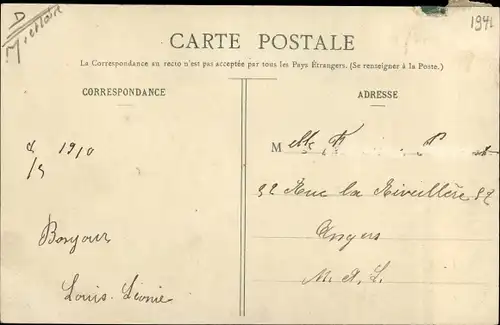 D
Militaire
1941
CARTE POSTALE
La Correspondance au recto n'est pas acceptée par tous les Pays Étrangers. (Se renseigner à la Poste.)
CORRESPONDANCE
ADRESSE
1910
M elle
32 Rue la Réveillère 32
Angers
M. et L.
Bonjour
Louis-Léonie